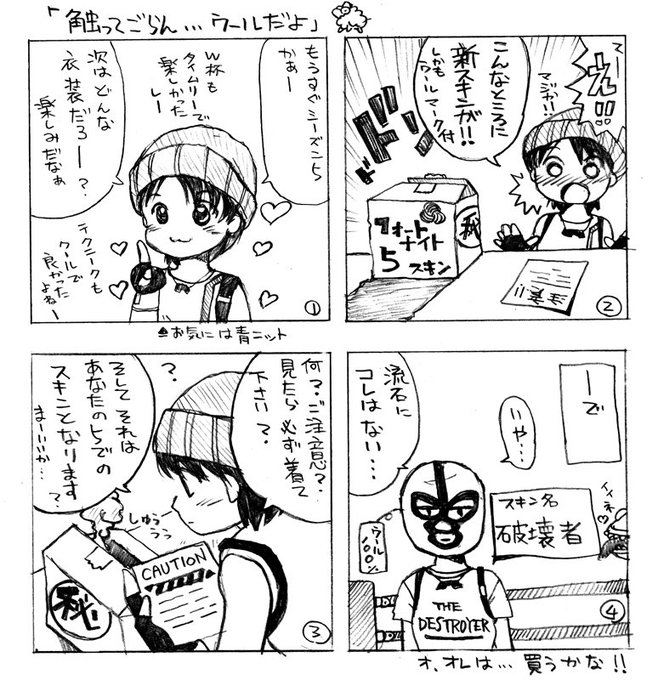 「触ってごらん…ウールだよ」
もうすぐシーズン5
かぁー
W杯も
タイムリーで
楽しかった
しー
次はどんな
衣装だろー？
楽しみだなぁ
テクニークも
クールで
良かった
よねー
①
お気には青ニット
てー
え!!
マジか!!
こんなところに
新スキンが!!
しかも
ウールマーク付
ドドン
フォート
ナイト
5 スキン
㊙
②
何？ご注意？
見たら必ず着て
下さい？
？
そしてそれは
あなたの5での
スキンとなります
まーいいか…？
しゅうぅぅ
CAUTION
㊙
③
ーで
いや…
流石に
コレはない…
ウール
100%
スキン名
破壊者
イイネ
THE
DESTROYER
④
オ、オレは…買うかな!!